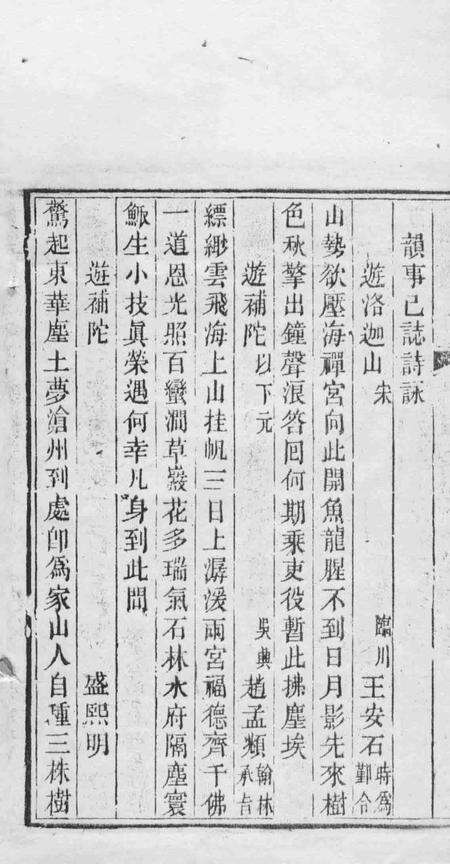 韻事已誌詩詠
遊洛迦山宋 臨川王安石時爲鄞令
山勢欲壓海禪宮向此開魚龍腥不到日月影先來樹
色秋擎出鐘聲浪答囘何期乘吏役暫此拂塵埃
遊補陀以下元 吳興趙孟頫翰林承旨
縹緲雲飛海上山挂帆三日上潺湲兩宮福德齊千佛
一道恩光照百蠻澗草巖花多瑞氣石林水府隔塵寰
鯫生小技眞榮遇何幸凡身到此間
遊補陀 盛熙明
驚起東華塵土夢滄州到處卽爲家山人自種三株樹